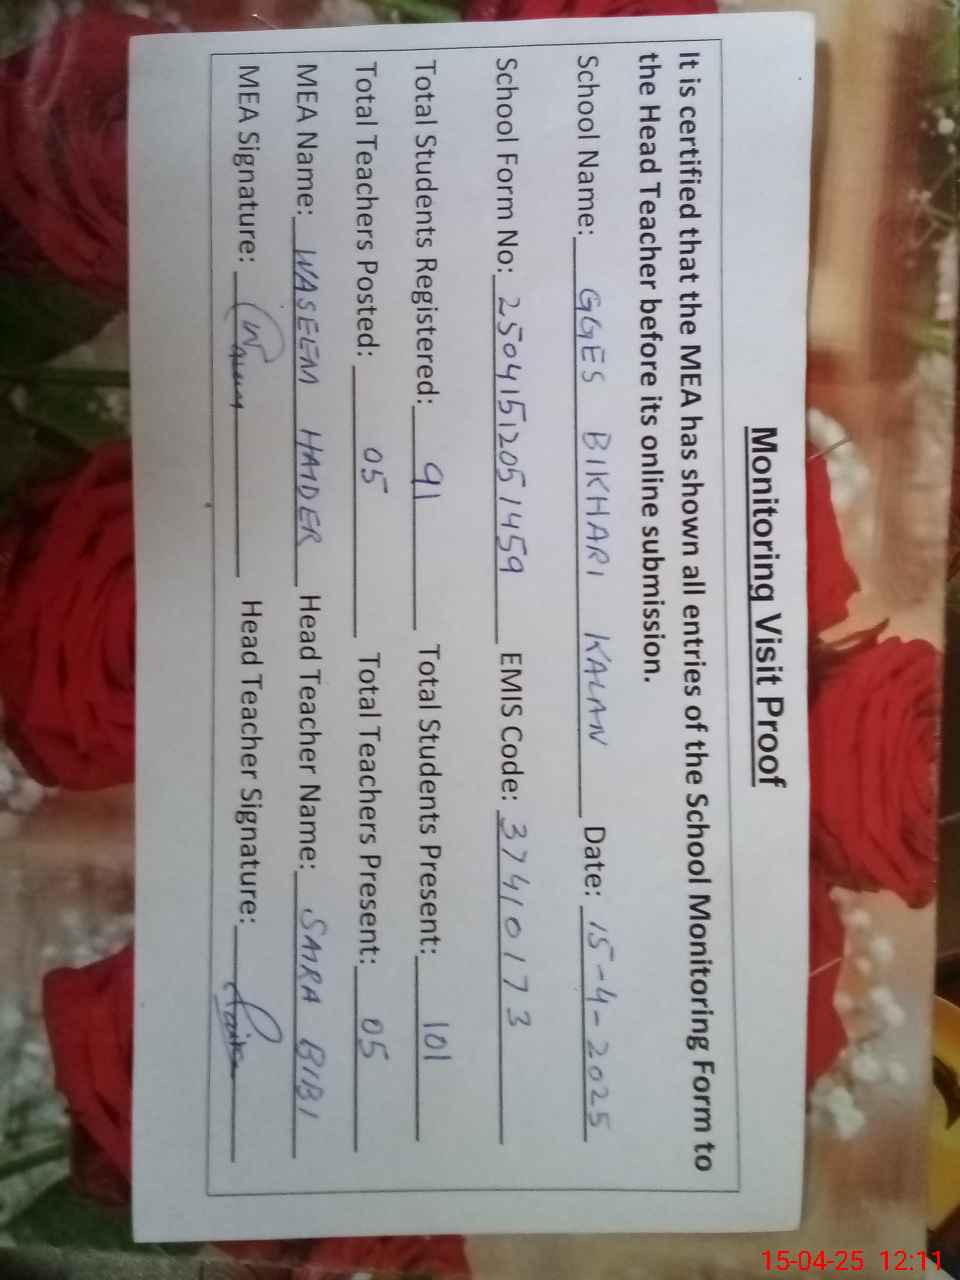 Monitoring Visit Proof
It is certified that the MEA has shown all entries of the School Monitoring Form to
the Head Teacher before its online submission.
School Name: GGES BIKHARI KALAN Date: 15-4-2025
School Form No: 25041512051459 EMIS Code: 37410173
Total Students Registered: 91 Total Students Present: 101
Total Teachers Posted: 05 Total Teachers Present: 05
MEA Name: WASEEM HAIDER Head Teacher Name: SAIRA BIBI
MEA Signature: Waseem Head Teacher Signature: Saira
15-04-25 12:11